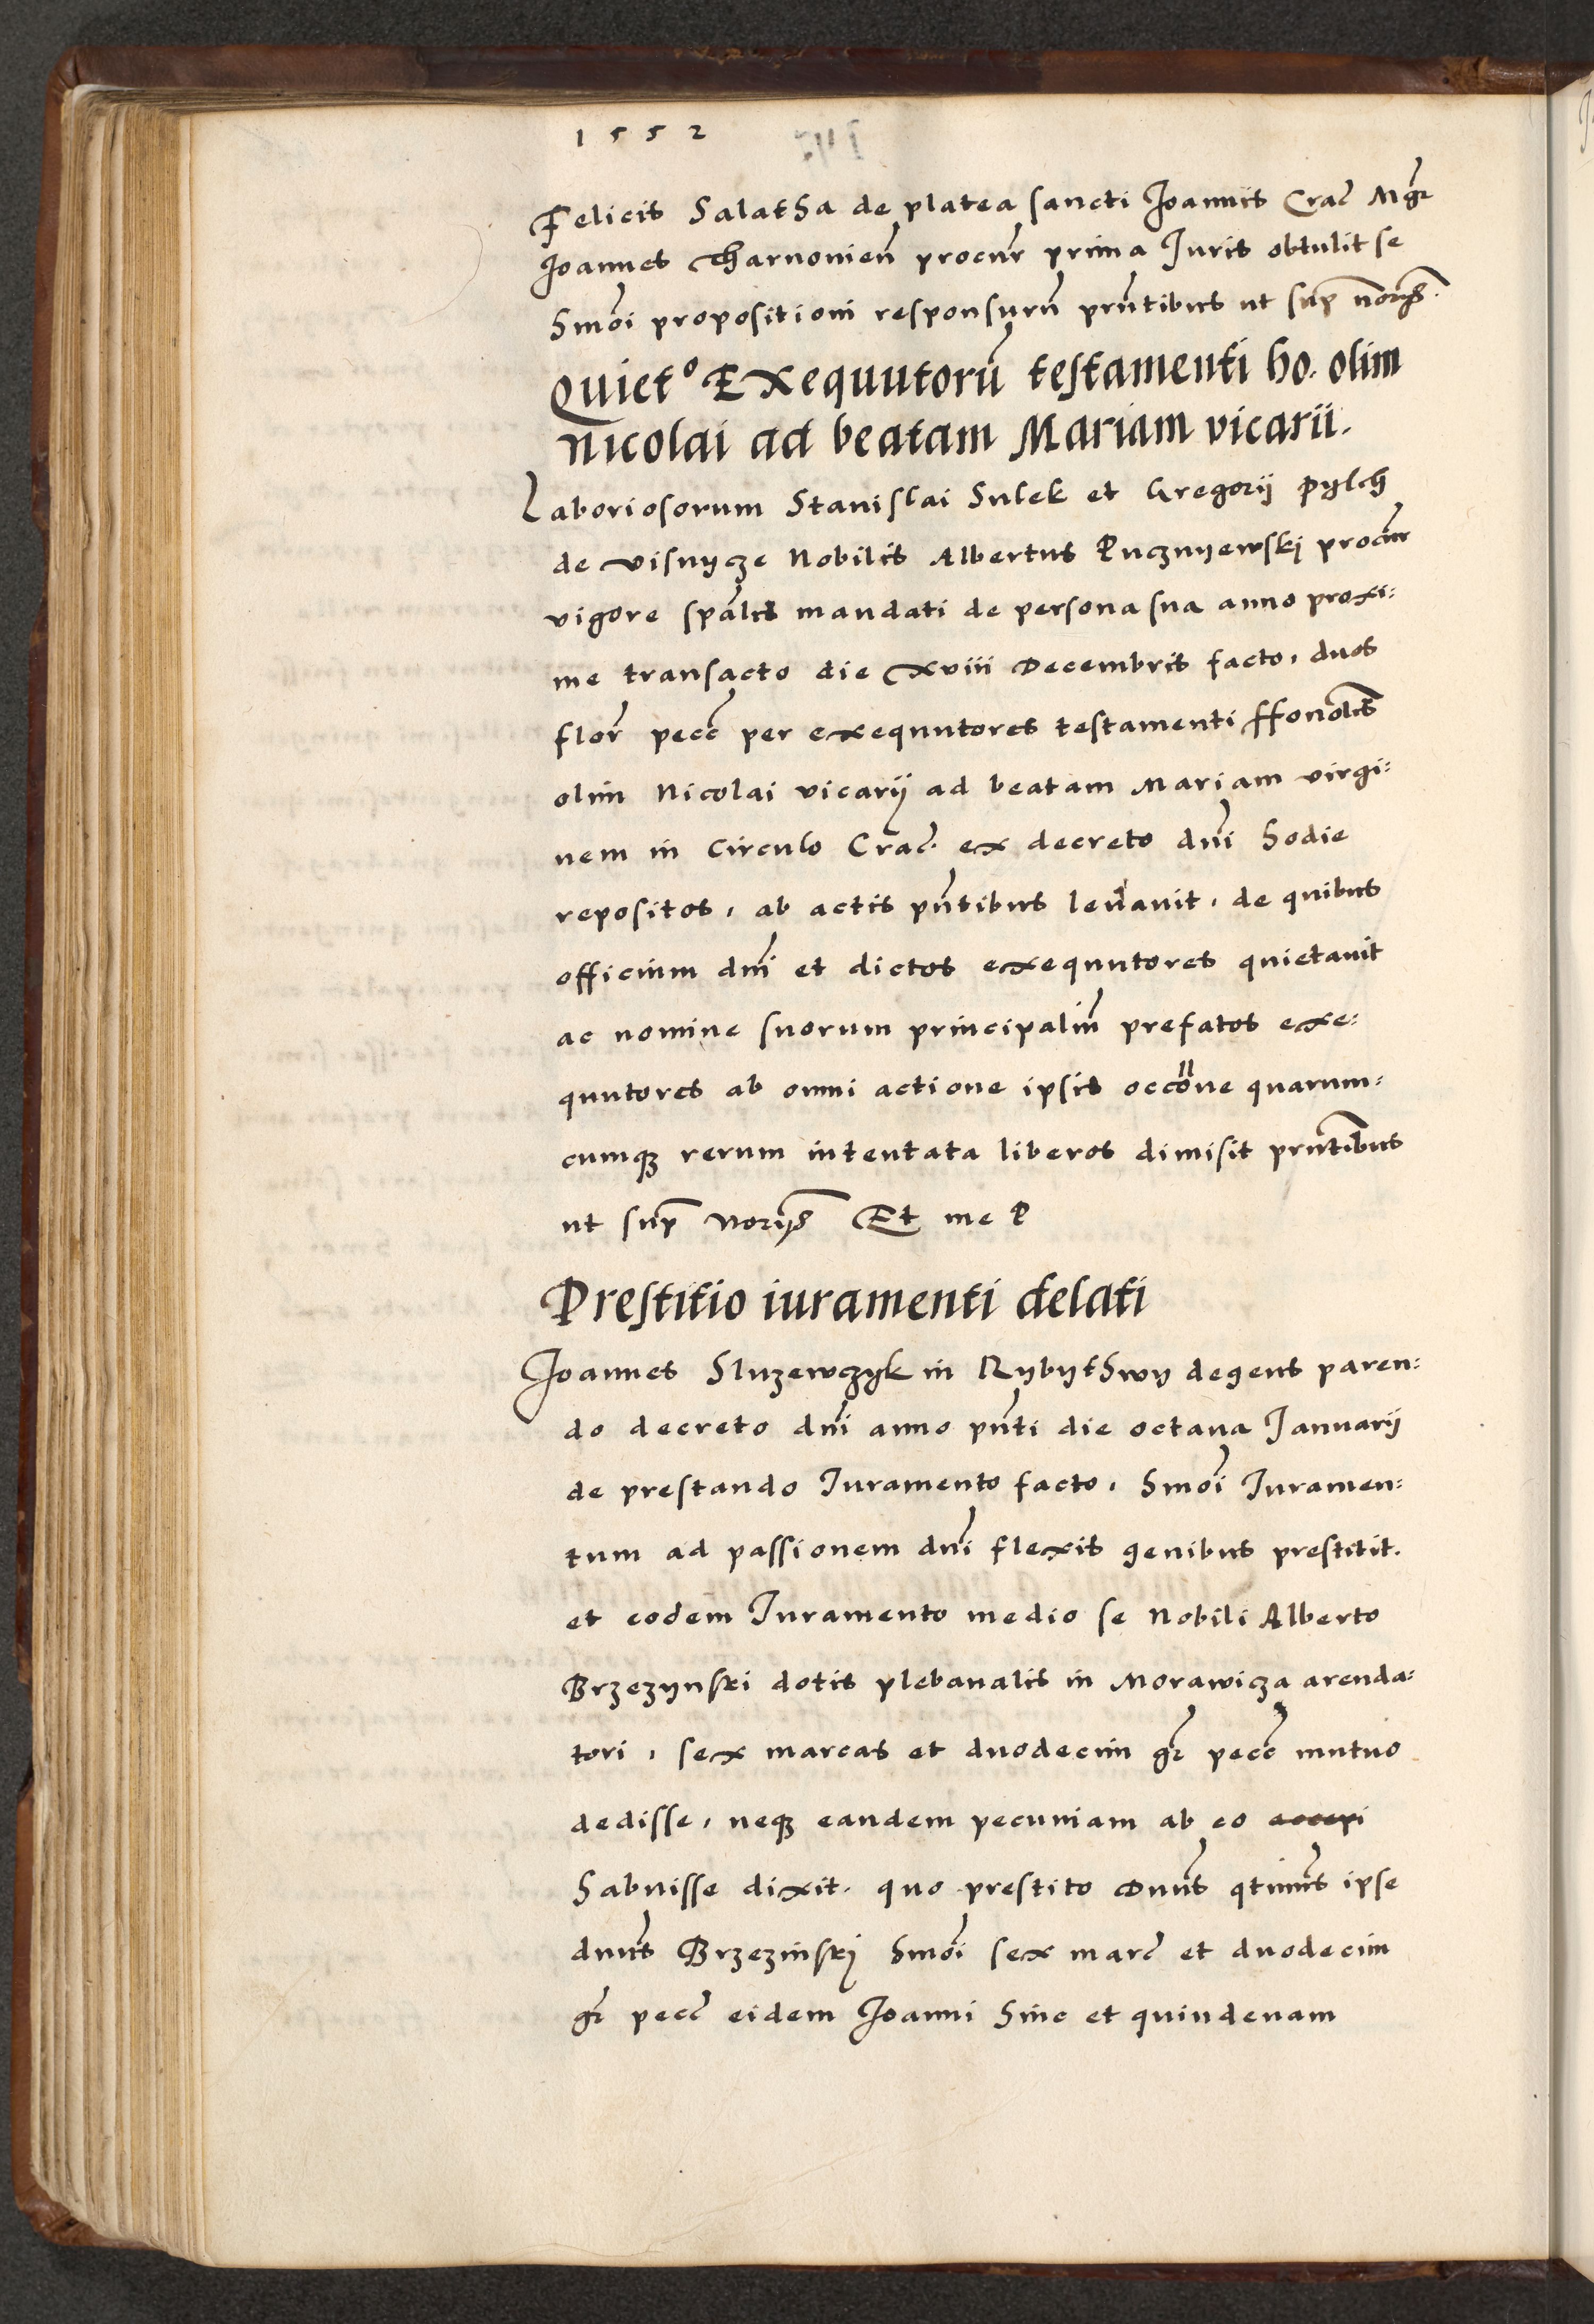 1552
Felicis Salatha de platea sancti Joannis Crac Mgr
Joannes Tharnovien procur prima Juris obtulit se
hmoi propositioni responsurum prntibus ut sup noriis.
Quiet° Exequutorũ testamenti ho. olim
Nicolai ad beatam Mariam vicarii.
Laboriosorum Stanislai Sulek et Gregorij Pylch
de Visnycze Nobilis Albertus Pucznyewskj procur
vigore spalis mandati de persona sua anno proxi:
me transacto die xviii Decembris facto, duos
flor pecc per exequutores testamenti
olim Nicolai vicarij ad beatam Mariam virgi:
nem in Circulo Crac. ex decreto dni hodie
repositos, ab actis pntibus levavit, de quibus
officium dni et dictos exequutores quietavit
ac nomine suorum principaliũ prefatos exe:
quutores ab omni actione ipsis occone quarum:
cumq rerum intentata liberos dimisit prntibus
ut sup noriis Et me P
Prestitio iuramenti delati
Joannes Sluzewczyk in Rybythwy degens paren:
do decreto dni anno pnti die octava Januarij
de prestando Juramento facto, hmoi Juramen:
tum ad passionem dni flexis genibus prestitit.
et eodem Juramento medio se Nobili Alberto
Brzezynski dotis plebanalis in Morawicza arenda:
tori, sex marcas et duodecim gr pecc mutuo
dedisse, neq eandem pecuniam ab eo accepi
habuisse dixit. quo prestito Dnus qtinus ipse
dnus Brzezinskj hmoi sex marc et duodecim
gr pecc eidem Joanni hinc et quindenam